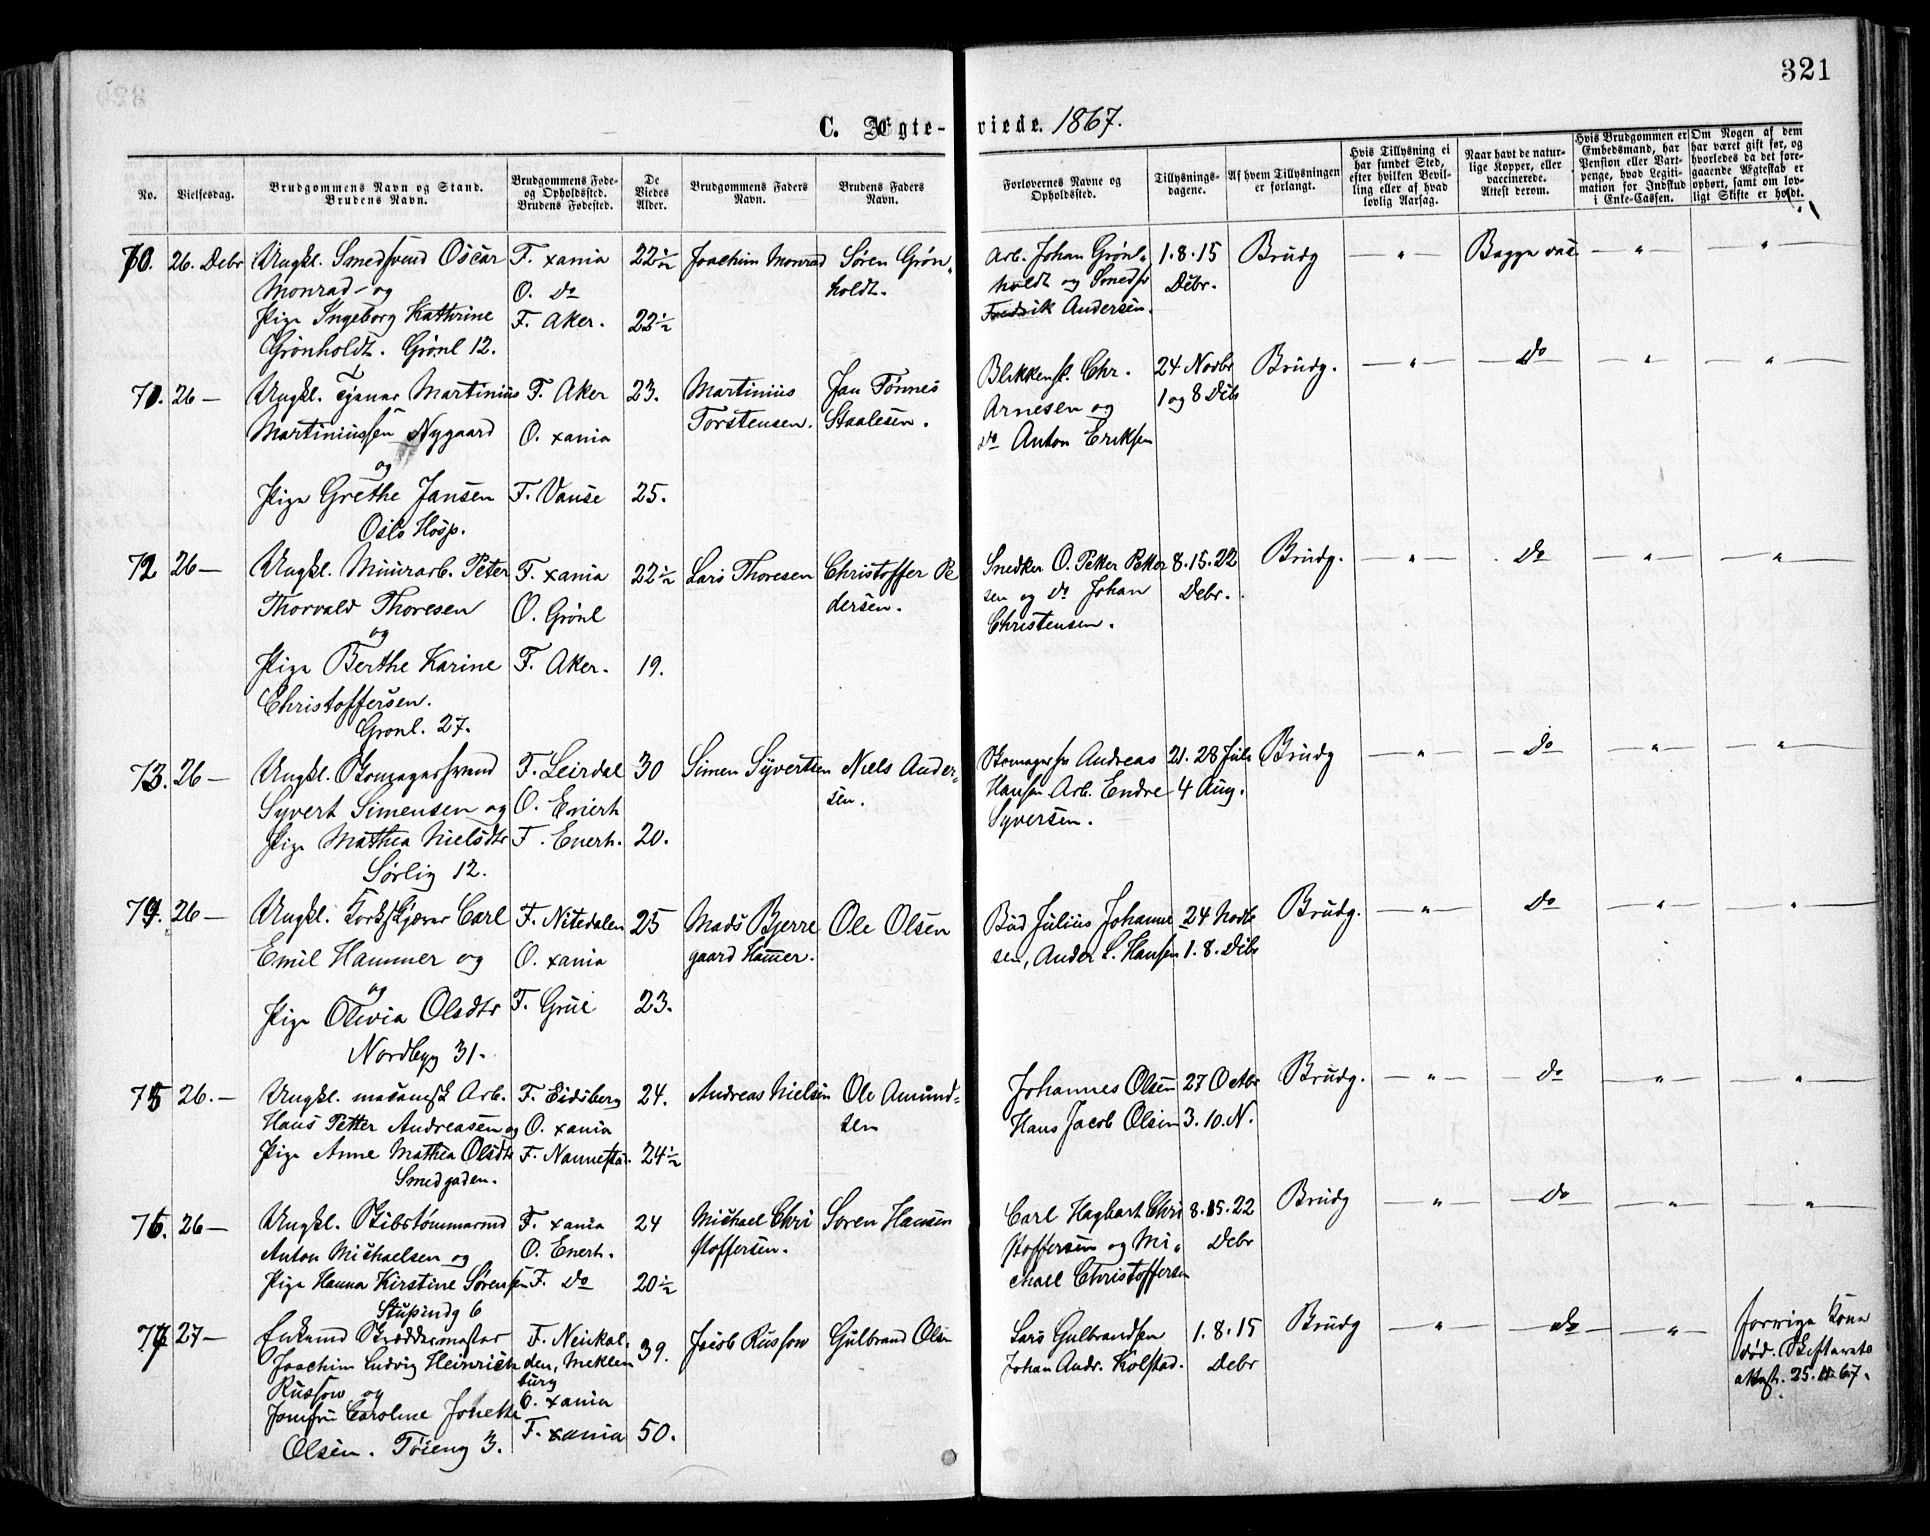 321
C. Ægte-viede. 1867.
No.
Vielsesdag.
Brudgommens Navn og Stand.
Brudens Navn.
Brudgommens Føde-
og Opholdssted.
Brudens Fødested.
De
Viedes
Alder.
Brudgommens Faders
Navn.
Brudens Faders
Navn.
Forlovernes Navne og
Opholdssted.
Tillysnings-
dagene.
Af hvem Tillysningen
er forlangt.
Hvis Tillysning ei
har fundet Sted,
efter hvilken Bevil-
ling eller af hvad
lovlig Aarsag.
Naar havt de natur-
lige Kopper, eller
vaccinerede.
Attest derom.
Hvis Brudgommen er
Embedsmand, har
Pension eller Vart-
penge, hvad Legiti-
mation for Indskud
i Enke-Cassen.
Om Nogen af dem
har været gift før, og
hvorledes da det fore-
gaaende Ægteskab er
ophørt, samt om lov-
ligt Skifte er holdt.
70. 26. Debr Ungkl. Smedsvend Oscar F. xania 22½ Joachim Monrad Søren Grøn- Arb. Johan Grønl- 1.8.15 Brudg " Bagge vac " "
Monrad og O. do holdt. holdt og Smedsv Debr.
Pige Ingeborg Kathrine F. Aker. 22½ Fredrik Andersen.
Grönholdt. Grønl 12.
71. 26 — Ungkl. Martinius F. Aker 23. Martinius Jan Tønnes Blikkensl. Chr. 24 Novbr Brudg. " do " "
Martiniussen Nygaard O. xania Torstensen. Staalesen. Arnesen og 1 og 8 Debr
og do Anton Eriksen
Pige Grethe Jansen F. Vanse 25.
Oslo Hosp.
72 26 — Ungkl. Muurarb. Peter F. xania 22½ Lars Thoresen Christoffer Pe Snedker O. Peter Peter 8.15.22 Brudg. " do " "
Thorvald Thoresen O. Grönl dersen. sen og do Johan Debr.
og Christensen.
Pige Berthe Karine F. Aker. 19.
Christoffersen.
Grønl. 27.
73. 26 — Ungkl. Skomagersvend F. Leirdal 30 Simen Syvertsen Niels Ander- Skomagersv Andreas 21. 28 Juli Brudg " do " "
Syvert Simensen og O. Enerh sen. Hansen Arb. Endre 4 Aug.
Pige Mathea Nielsdtr F. Enerh. 20. Syversen.
Sørlig 12.
74. 26 — Ungkl. Korkskjærer Carl F. Nitedalen 25 Mads Bjerre Ole Olsen Bud Julius Johanne 24 Novbr Brudg. " do " "
Emil Hammer og O. xania gaard Hammer. sen, Ander L. Hansen 1.8. Debr
og
Pige Olivia Olsdtr F. Grue 23.
Nordbyg 31.
75 26. — Ungkl. mecanisk Arb. F. Eidsberg 24. Andreas Nielsen Ole Amund- Johannes Olsen 27 Octbr Brudg. " do " "
Hans Petter Andreasen og O. xania sen Hans Jacob Olsen 3. 10. N.
Pige Anne Mathea Olsdtr F. Nannestad. 24½
Smedgaden.
76. 26 — Ungkl. Skibstømmermd F. xania 24 Michael Chri Soren Hansen Carl Hagbart Chri 8.15.22 Brudg " do " "
Anton Michaelsen og O. Enerh. stoffersen. stoffersen og Mi- Debr
Pige Hanna Kirstine Sørensen F. do 20½ chael Christoffersen
Stupindg 6
77 27 — Enkemd Skræddermester F. Neukal- 39. Jacob Russow Gulbrand Olsen Lars Gulbrandsen 1.8.15 Brudg " do " forrige Kone
Joachim Ludvig Heinrich den, Meklen Johan Andr. Kolstad. Debr død. Skifterets
Russow og burg attest. 25. 11. 67.
Jomfru Caroline Jonette O. xania
Olsen. Tøieng 3. F. xania 50.